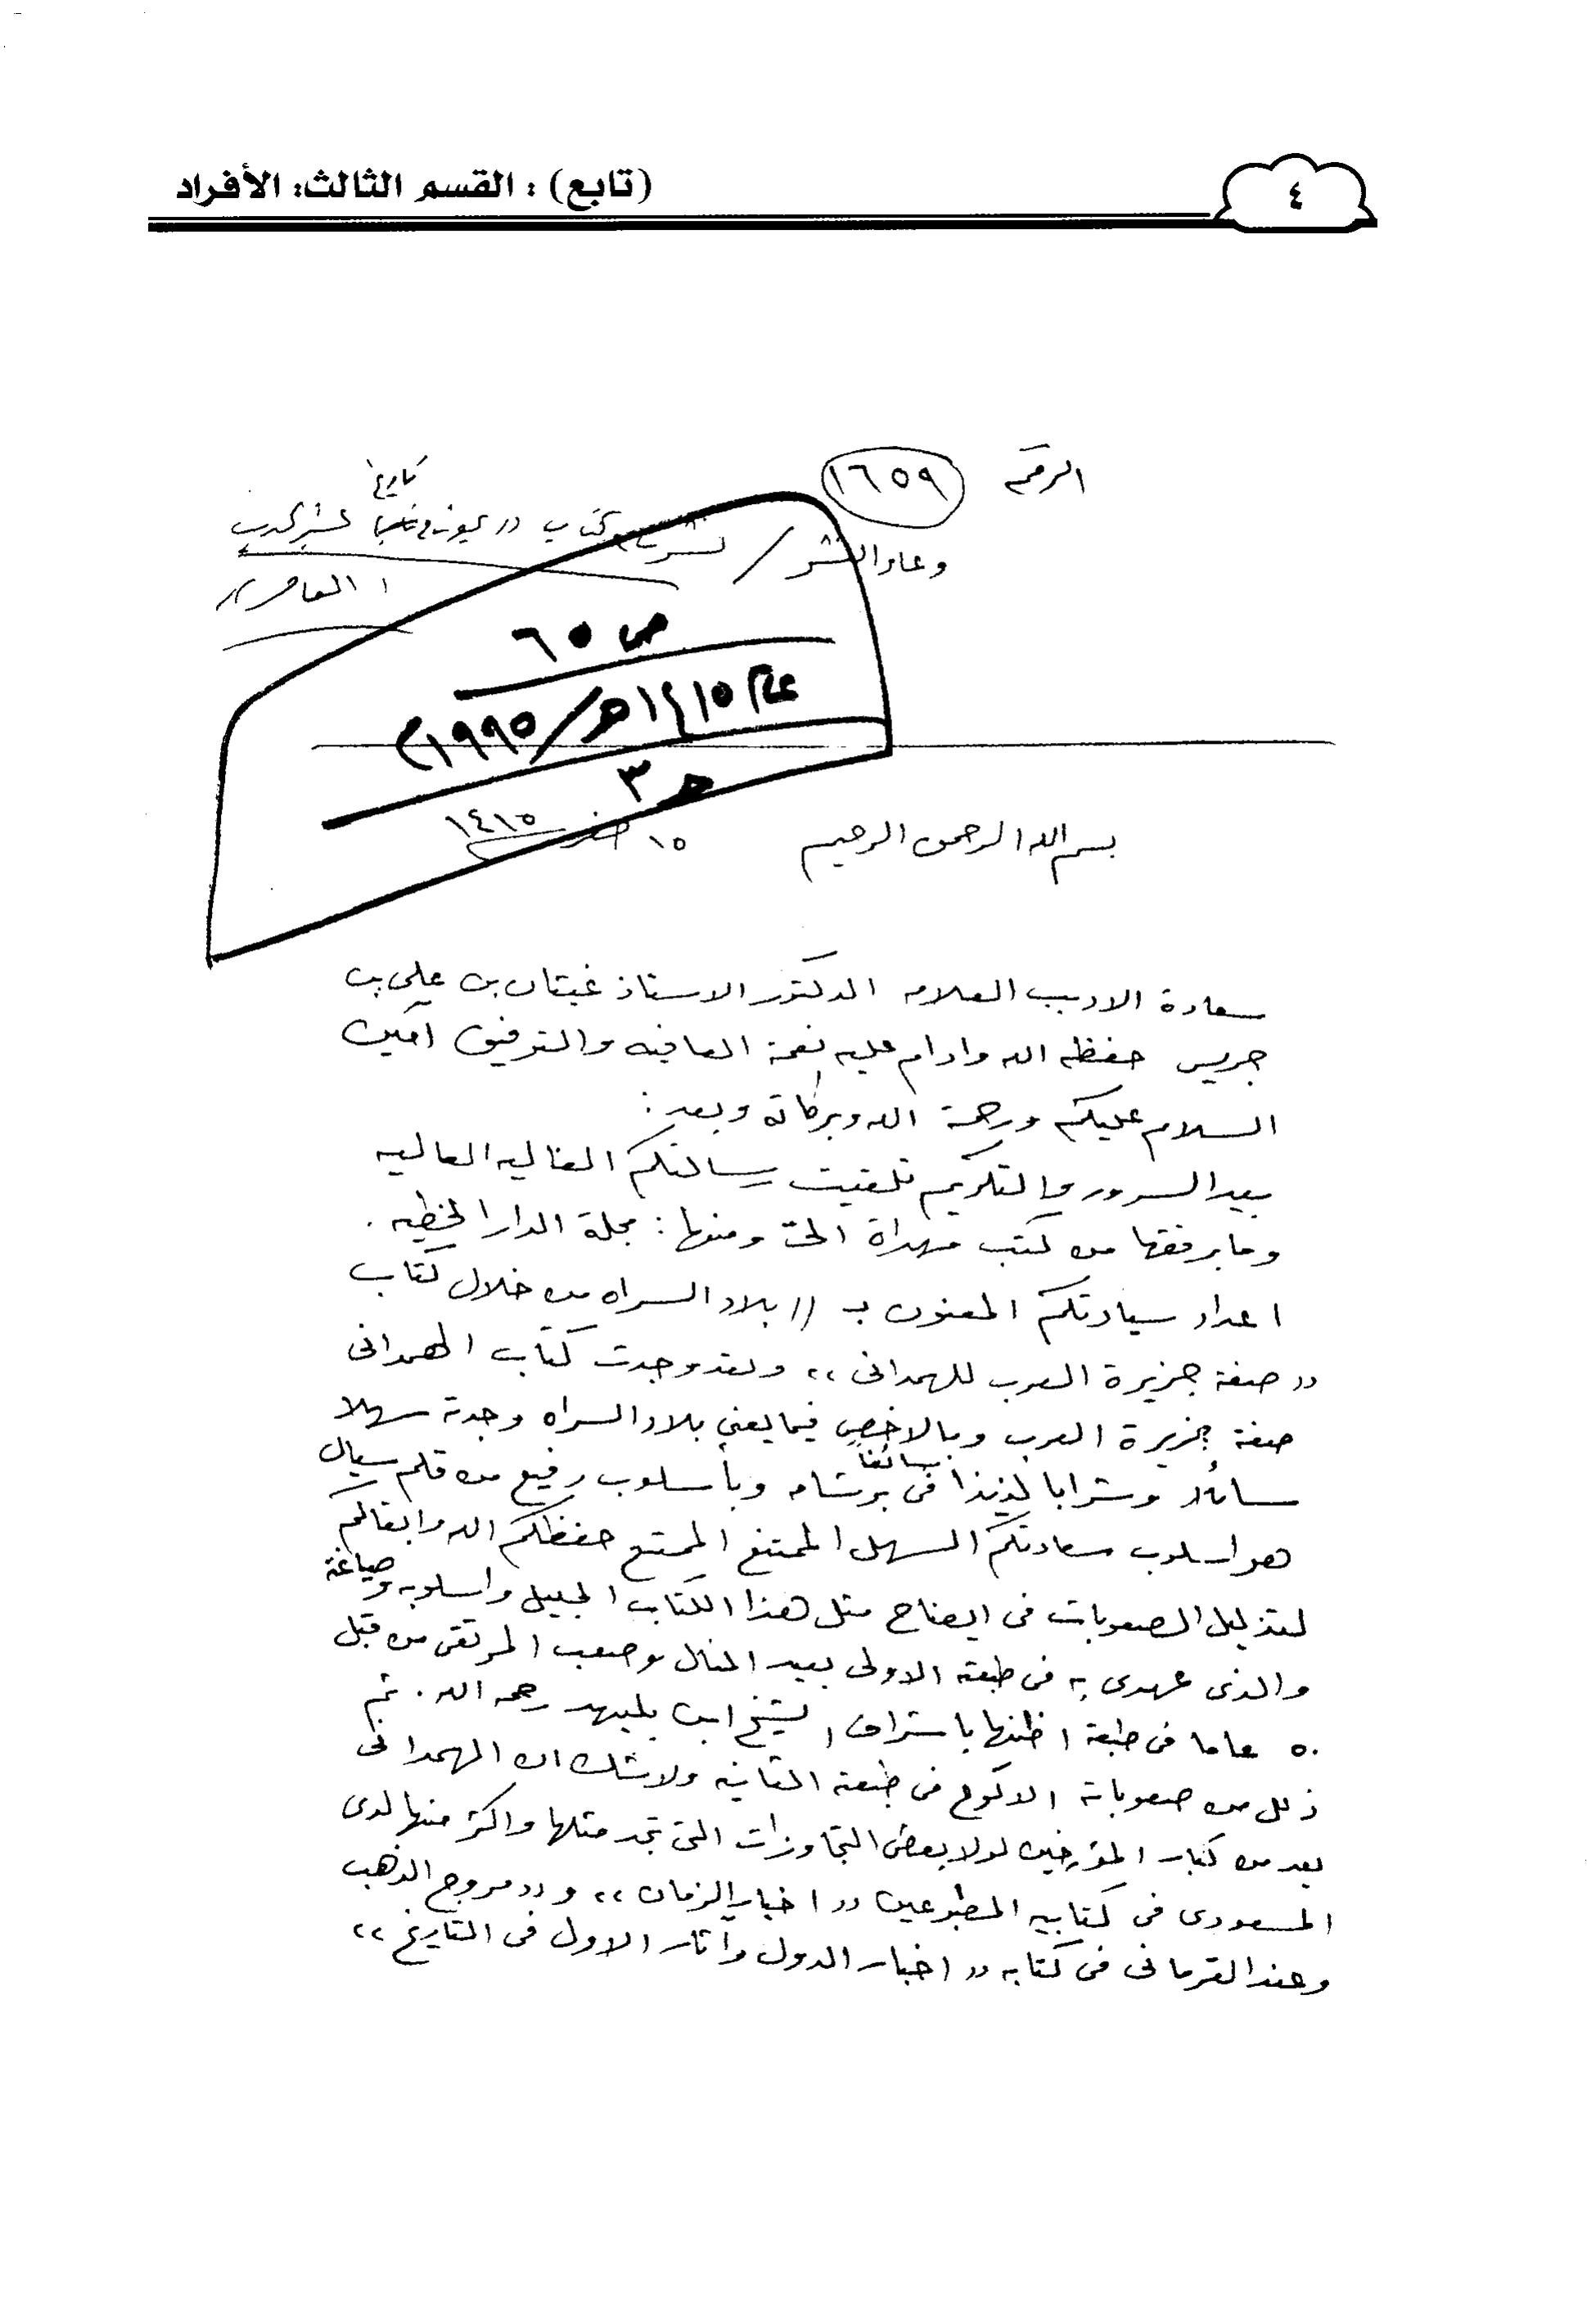 ٤
(تابع) : القسم الثالث: الأفراد
الرقم ١٦٥٩
تاريخ
كتاب
المعاصر
ص ٦٥
عام ١٤١٥هـ/١٩٩٥م
هـ ٣
بسم الله الرحمن الرحيم
١٥ صفر ١٤١٥
سعادة الاديب العلامه الدكتور الاستاذ غيثان بن علي بن
جريس حفظه الله وادام عليه نعمة العافيه والتوفيق آمين
السلام عليكم ورحمة الله وبركاته وبعد :
بيد السرور والتكريم تلقيت رسالتكم الغاليه العاليه
وما برفقها من كتب مهداة الىّ ومنها : مجلة الدار
اعداد سيادتكم المعنون بـ (( بلاد السراه من خلال كتاب
(( صفة جزيرة العرب للهمدانى ،، ولقد وجدت كتاب الهمدانى
صفة جزيرة العرب وبالاخص فيما يعني بلاد السراه وجدته سهلا
وشرابا لذيذا سائغاً فى وبأسلوب رفيع من قلم سيال
هو اسلوب سعادتكم السهل الممتنع الممتع حفظكم الله وابقاكم
لتذليل الصعوبات فى ايضاح مثل هذا الكتاب الجليل واسلوبه وصياغة
والذى عهدى به فى طبعته الاولى بعيد المنال وصعب المرتقى من قبل
٥٠ عاما فى طبعة اظنها باشراف الشيخ ابن بليهد رحمه الله . ثم
ذلل من صعوباته الاكوع فى طبعته الثانيه ولاشك ان الهمدانى
يعد من كبار المؤرخين لولا بعض التجاوزات التى تجد مثلها واكثر منها لدى
المسعودى فى كتابيه المطبوعين (( اخبار الزمان ،، و (( مروج الذهب
وعند القرمانى فى كتابه (( اخبار الدول وآثار الاول فى التاريخ ،،